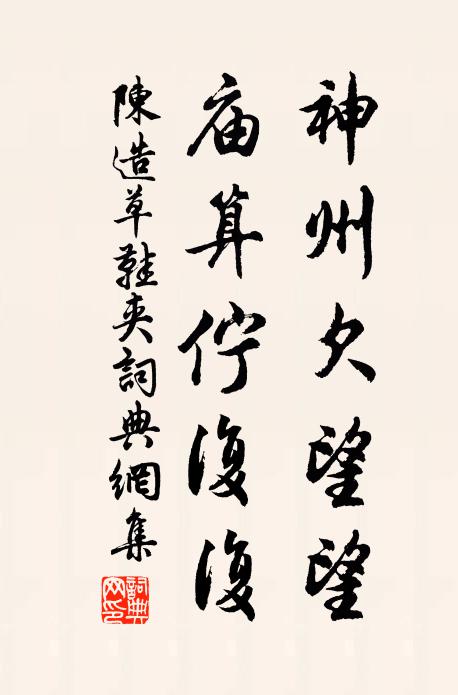 神州久望望
庙算佇復復
陳造草鞋夾詞典網集
詞典
网印